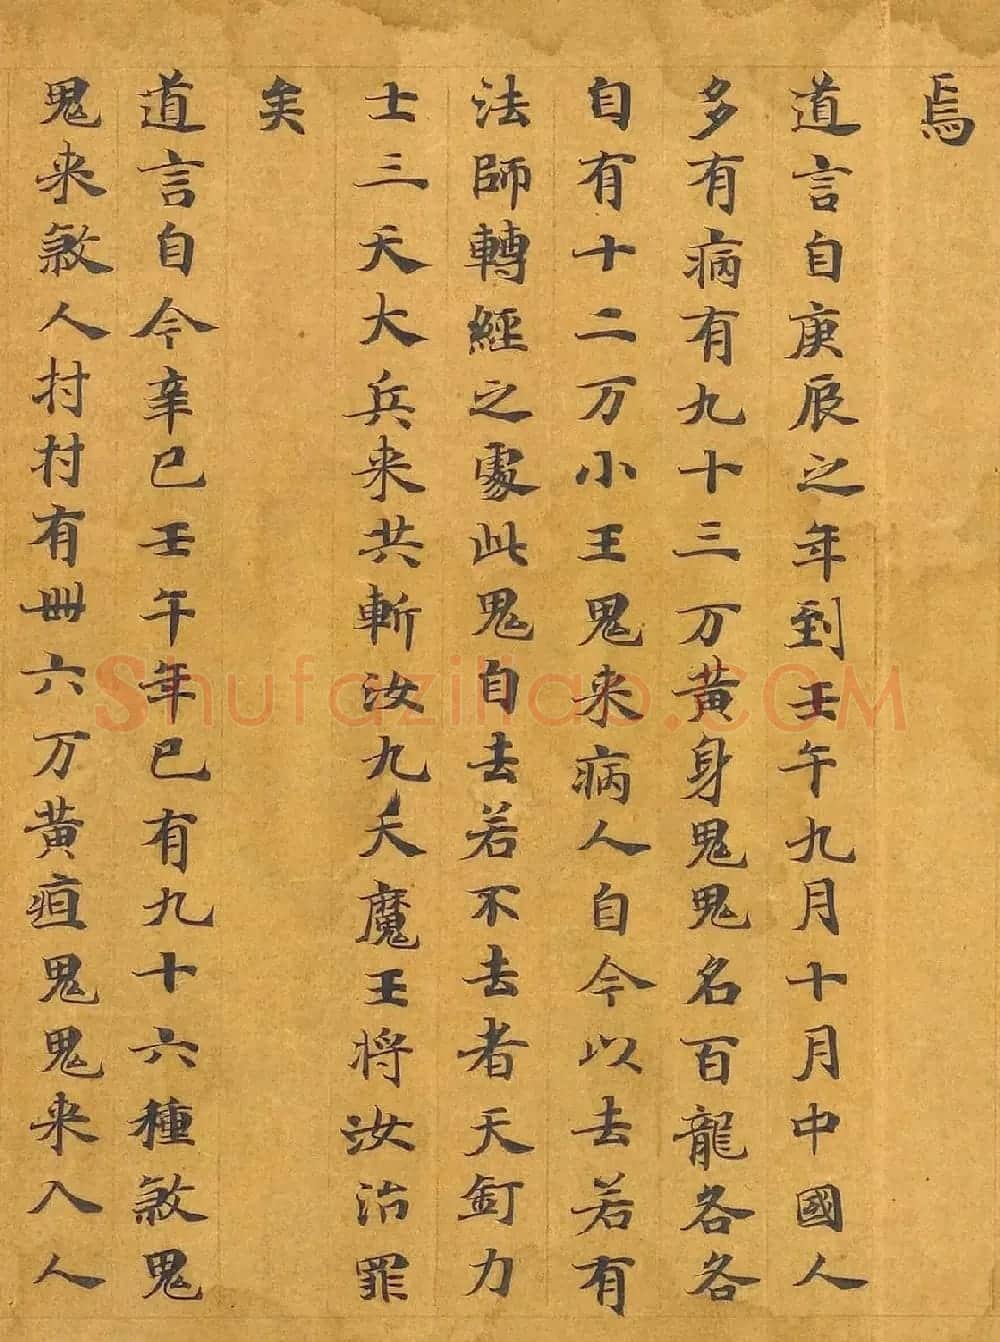 焉
道言自庚辰之年到壬午九月十月中國人
多有病有九十三万黄身鬼鬼名百龍各各
自有十二万小王鬼来病人自今以去若有
法師轉經之處此鬼自去若不去者天釘力
士三天大兵来共斬汝九天魔王将汝治罪
矣
道言自今辛巳壬午年已有九十六種煞鬼
鬼来煞人村村有卌六万黄疸鬼鬼来入人
Shufaziliao.COM